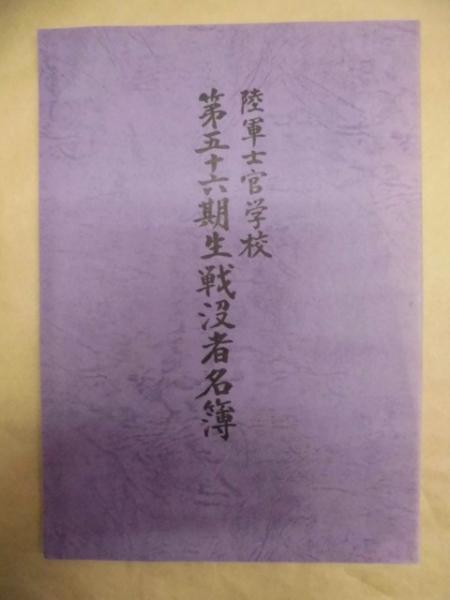 陸軍士官学校
第五十六期生戦没者名簿